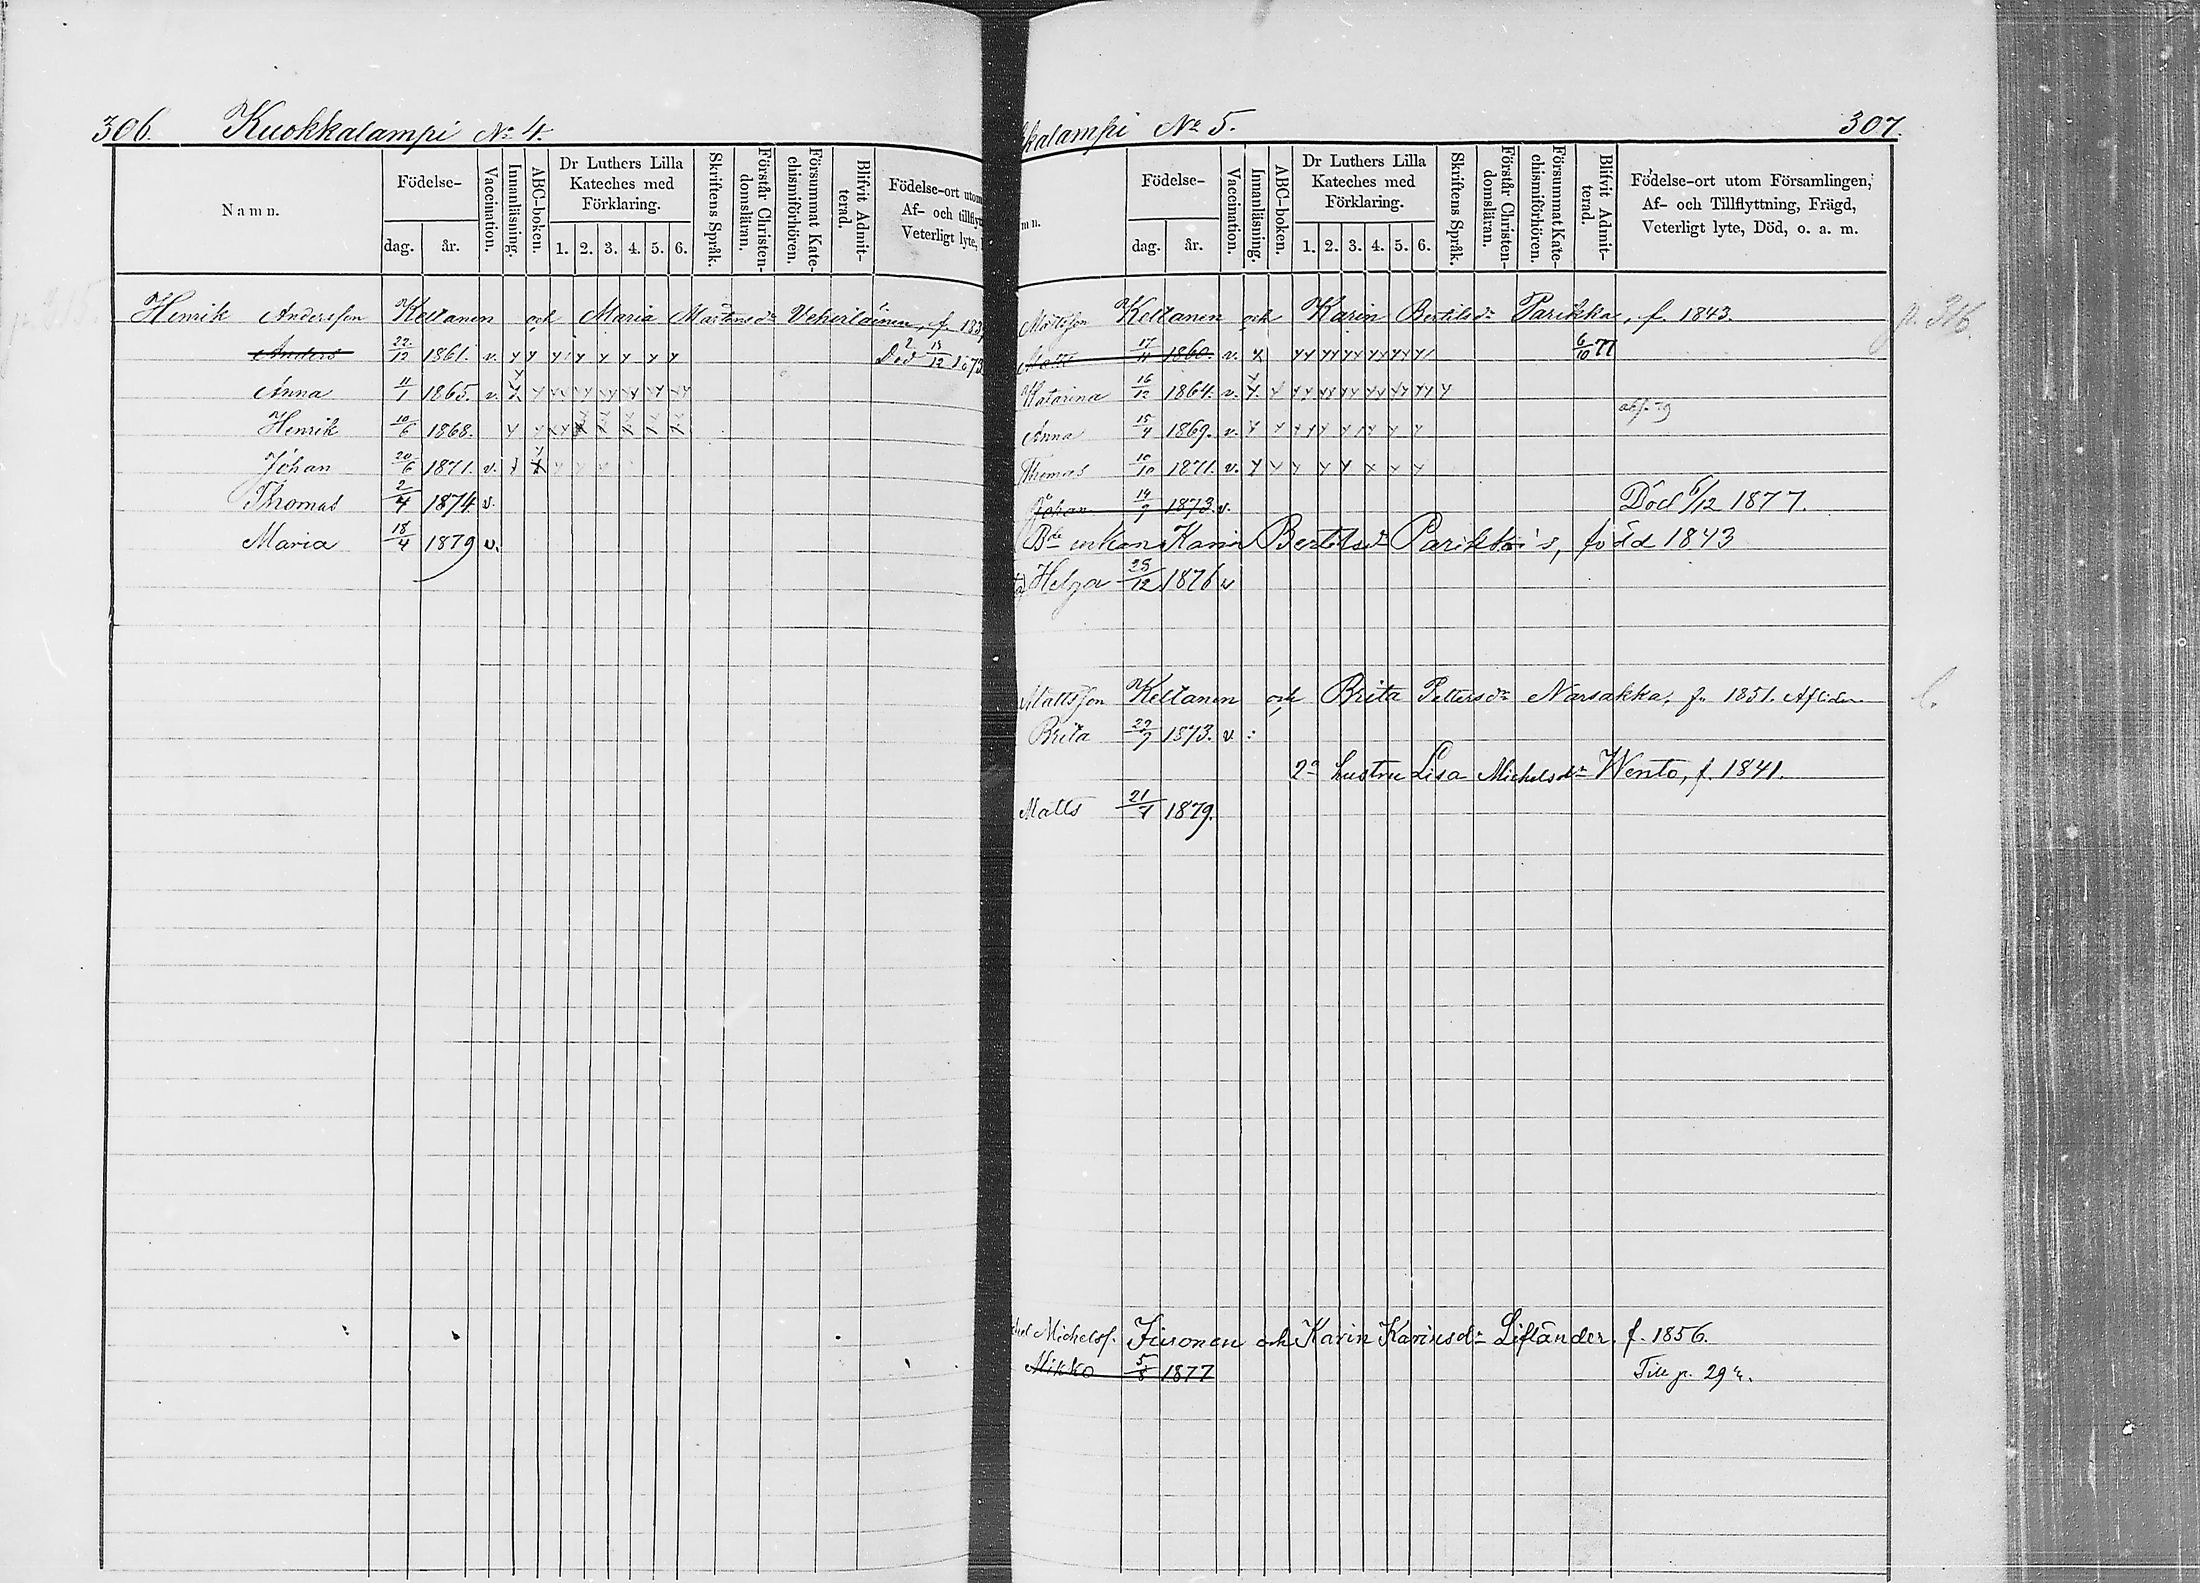 306. Kuokkalampi No 4.
Namn.
Födelse-
dag. år.
Vaccination.
Innanläsning.
ABC-boken.
Dr Luthers Lilla Kateches med Förklaring.
1. 2. 3. 4. 5. 6.
Skriftens Språk.
Förstår Christen-domsläran.
Försummat Kate-chismiförhören.
Blifvit Admit-terad.
Födelse-ort utom
Af- och tillflyt
Veterligt lyte,
Henrik Andersson Keltanen och Maria Mårtensdr Veherläinen, f. 183
Anders 22/12 1861. v. Död
Anna 11/1 1865. v.
Henrik 10/6 1868.
Johan 20/6 1871. v.
Thomas 2/4 1874 v.
Maria 18/4 1879 v.
kalampi No 5. 307.
mn.
Födelse-
dag år.
Vaccination.
Innanläsning.
ABC-boken.
Dr Luthers Lilla Kateches med Förklaring.
1. 2. 3. 4. 5. 6.
Skriftens Språk.
Förstår Christen-domsläran.
Försummat Kate-chismiförhören.
Blifvit Admit-terad.
Födelse-ort utom Församlingen,
Af- och Tillflyttning, Frägd,
Veterligt lyte, Död, o. a. m.
Mattsson Keltanen och Karin Bertilsdr Parikka, f. 1843. p. 316
Matts 17/11 1860. v. 6/10 77
Katarina 16/12 1864. v.
Anna 15/4 1869. v.
Thomas 10/10 1871. v.
Johan 19/9 1873. v. Död 6/12 1877.
Bde enkan Karin Bertilsdr Parikka's, född 1843
Helga 25/12 1876 v
Mattsson Keltanen och Brita Pettersdr Narsakka, f. 1851. Afliden
Brita 29/7 1873. v.
2a hustru Lisa Michelsdr Wento, f. 1841.
Matts 21/4 1879.
Michelss. Jusonen och Karin Karinsdr Lifländer, f. 1856.
Mikko 5/8 1877 Till p. 294.